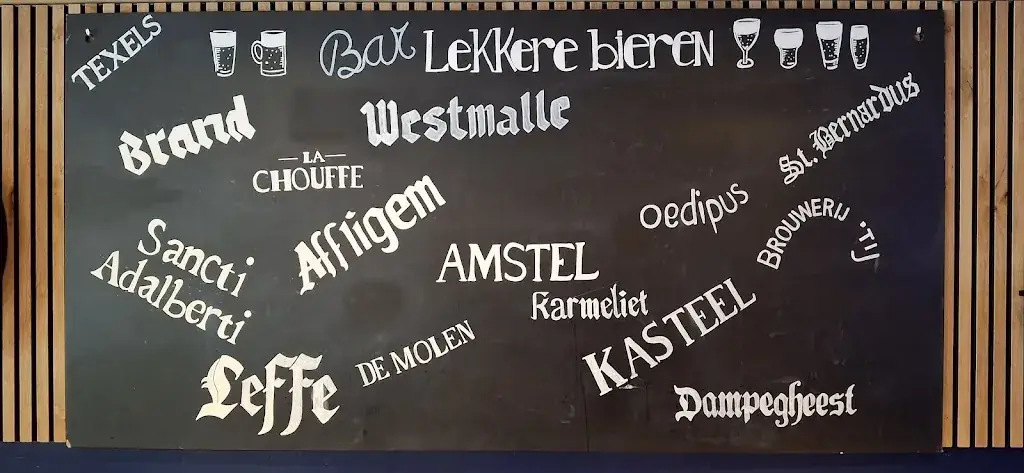 TEXELS
Bar Lekkere bieren
Brand
Westmalle
St. Bernardus
LA
CHOUFFE
Affligem
oedipus
BROUWERIJ 'T IJ
Sancti
Adalberti
AMSTEL
Karmeliet
KASTEEL
DE MOLEN
Leffe
Dampegheest